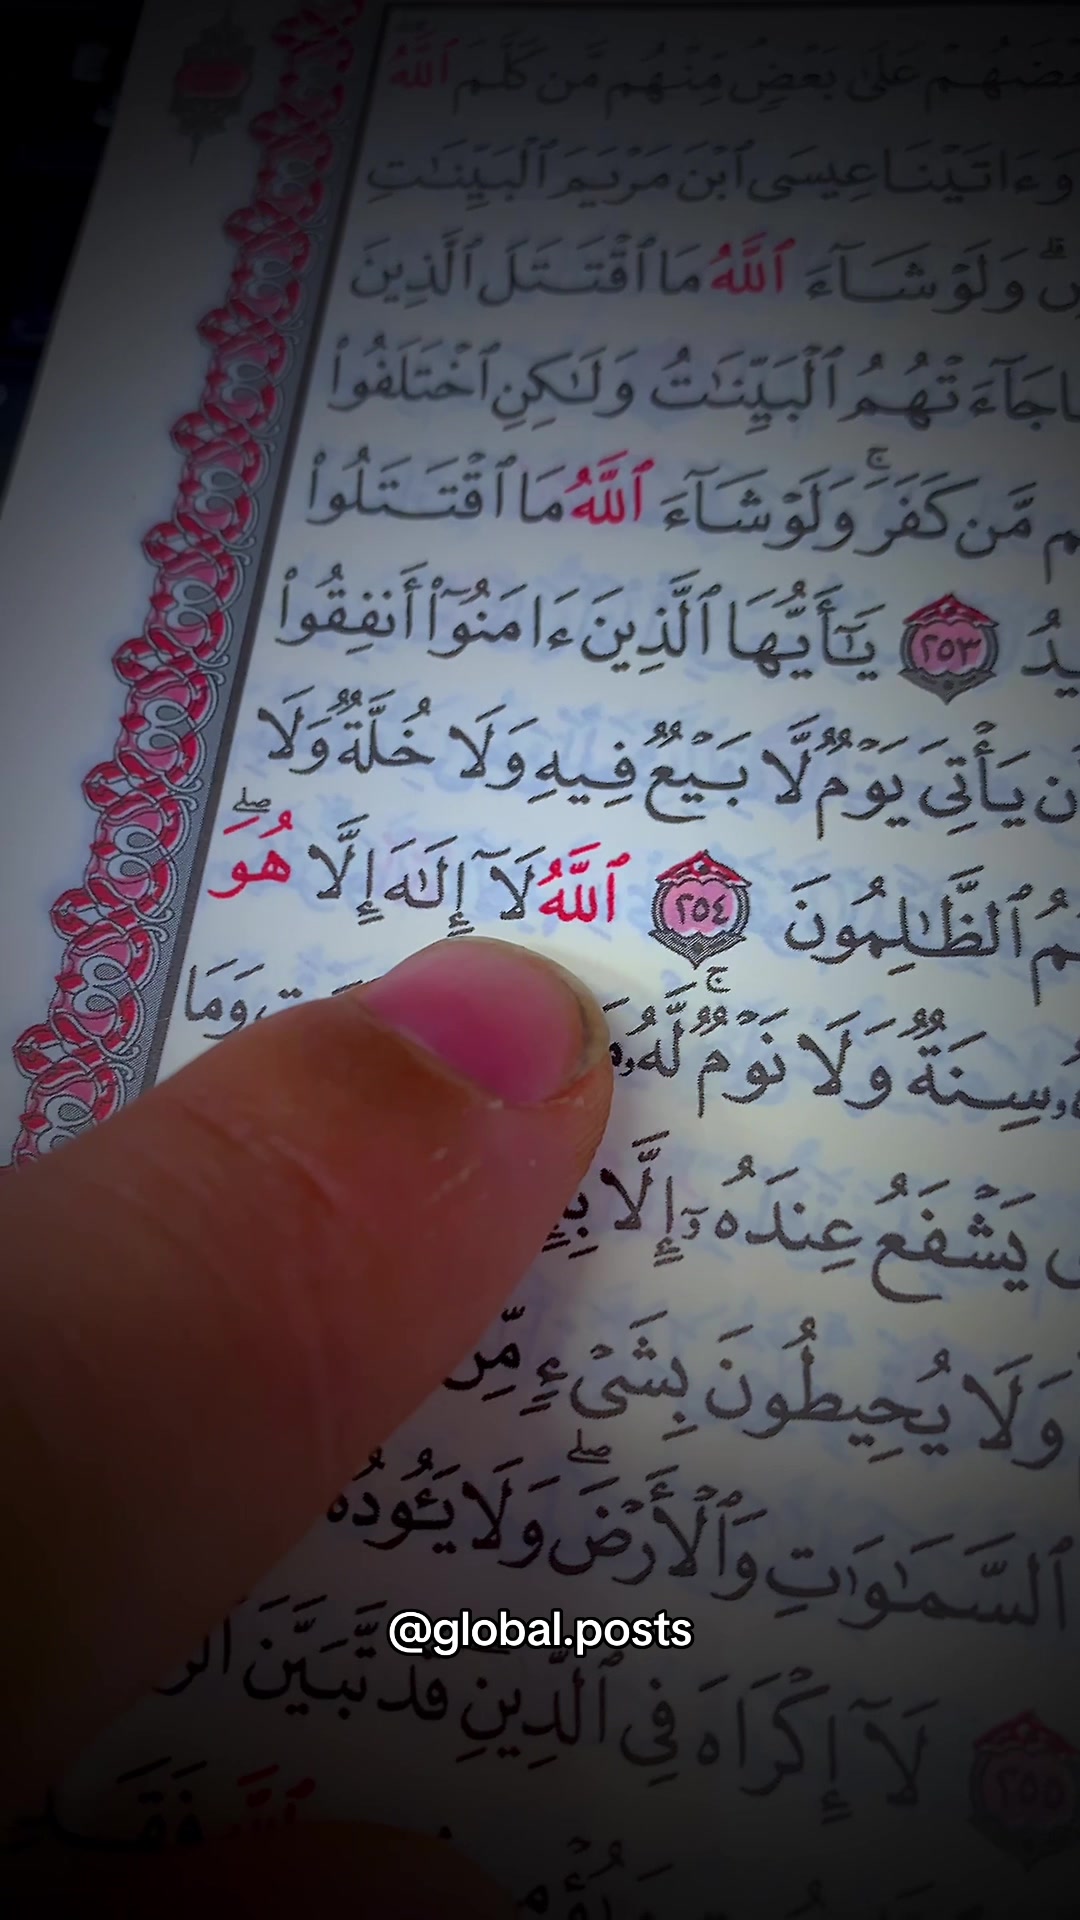 بَعْضَهُمْ عَلَىٰ بَعْضٍ مِّنْهُم مَّن كَلَّمَ ٱللَّهُ
وَءَاتَيْنَا عِيسَى ٱبْنَ مَرْيَمَ ٱلْبَيِّنَٰتِ
وَلَوْ شَآءَ ٱللَّهُ مَا ٱقْتَتَلَ ٱلَّذِينَ
جَآءَتْهُمُ ٱلْبَيِّنَٰتُ وَلَٰكِنِ ٱخْتَلَفُوا۟
مَّن كَفَرَ ۚ وَلَوْ شَآءَ ٱللَّهُ مَا ٱقْتَتَلُوا۟
٢٥٣ يَٰٓأَيُّهَا ٱلَّذِينَ ءَامَنُوٓا۟ أَنفِقُوا۟
يَأْتِىَ يَوْمٌ لَّا بَيْعٌ فِيهِ وَلَا خُلَّةٌ وَلَا
ٱلظَّٰلِمُونَ ٢٥٤ ٱللَّهُ لَآ إِلَٰهَ إِلَّا هُوَ ۖ
سِنَةٌ وَلَا نَوْمٌ ۚ لَّهُۥ وَمَا
يَشْفَعُ عِندَهُۥٓ إِلَّا
وَلَا يُحِيطُونَ بِشَىْءٍ مِّنْ
ٱلسَّمَٰوَٰتِ وَٱلْأَرْضَ ۖ وَلَا يَـُٔودُهُ
@global.posts
٢٥٥ لَآ إِكْرَاهَ فِى ٱلدِّينِ ۖ قَد تَّبَيَّنَ
ٱللَّهِ فَقَدِ